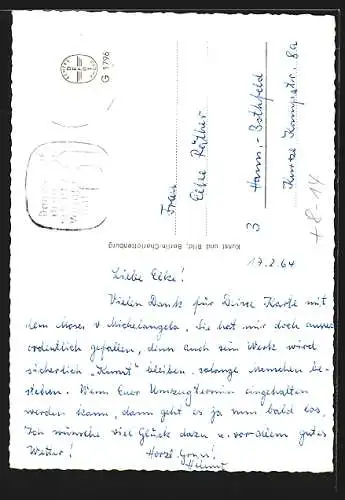 G 1796
Frau
Elke Räther
3 Hann.-Bothfeld
Kurze Kampstr. 8a
+8-14
Kunst und Bild, Berlin-Charlottenburg
17.2.64
Liebe Elke!
Vielen Dank für Deine Karte mit
dem Moses v. Michelangelo. Sie hat mir doch ausser
ordentlich gefallen, denn auch sein Werk wird
sicherlich "Kunst" bleiben, solange Menschen be-
stehen. Wenn Euer Umzugtermin eingehalten
werden kann, dann geht es ja nun bald los.
Ich wünsche viel Glück dazu u. vor allem gutes
Wetter! Herzl. Gruss!
Helmut